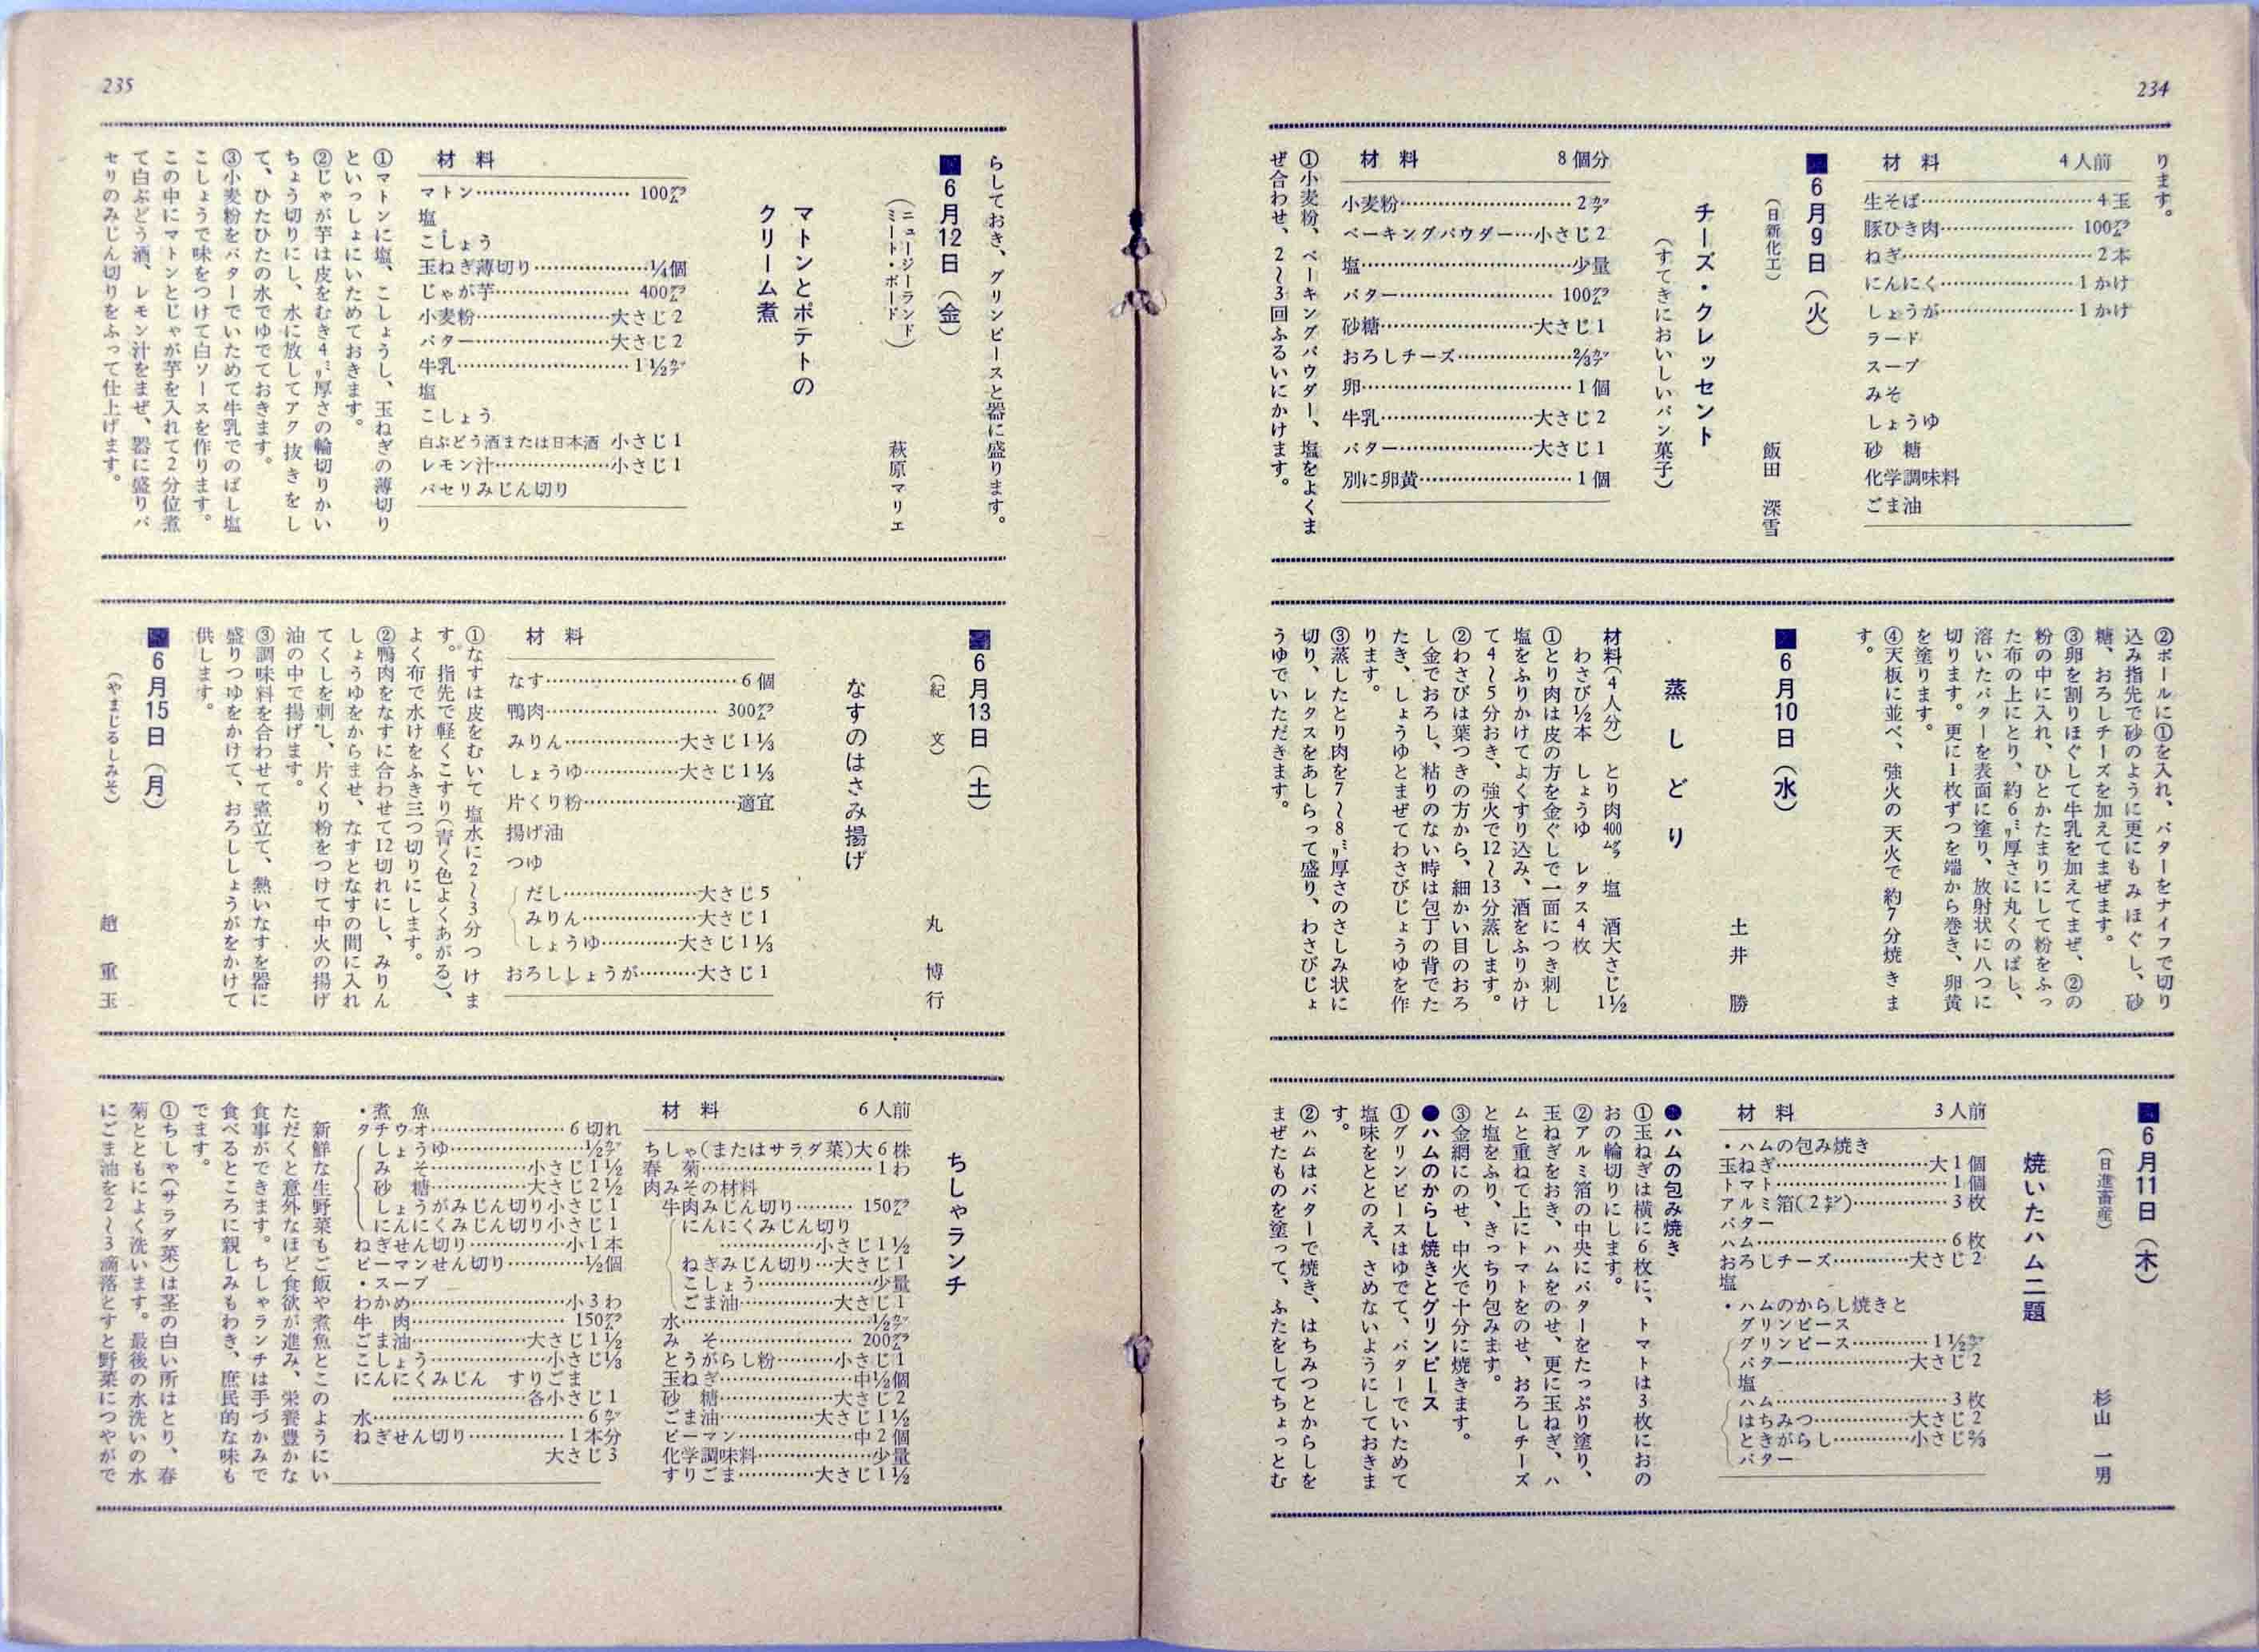 234
ります。
材料　4人前
生そば……4玉
豚ひき肉……100㌘
ねぎ……2本
にんにく……1かけ
しょうが……1かけ
ラード
スープ
みそ
しょうゆ
砂　糖
化学調味料
ごま油
■6月9日（火）
（日新化工）　飯田　深雪
チーズ・クレッセント
（すてきにおいしいパン菓子）
材料　8個分
小麦粉……2㌍
ベーキングパウダー…小さじ2
塩……少量
バター……100㌘
砂糖……大さじ1
おろしチーズ……⅔カップ
卵……1個
牛乳……大さじ2
バター……大さじ1
別に卵黄……1個
①小麦粉、ベーキングパウダー、塩をよくま
ぜ合わせ、2〜3回ふるいにかけます。
②ボールに①を入れ、バターをナイフで切り
込み指先で砂のように更にもみほぐし、砂
糖、おろしチーズを加えてまぜます。
③卵を割りほぐして牛乳を加えてまぜ、②の
粉の中に入れ、ひとかたまりにして粉をふっ
た布の上にとり、約6㍉厚さに丸くのばし、
溶いたバターを表面に塗り、放射状に八つに
切ります。更に1枚ずつを端から巻き、卵黄
を塗ります。
④天板に並べ、強火の天火で約7分焼きま
す。
■6月10日（水）
土井　勝
蒸しどり
材料（4人分）　とり肉400㌘　塩　酒大さじ1½
わさび½本　しょうゆ　レタス4枚
①とり肉は皮の方を金ぐしで一面につき刺し
塩をふりかけてよくすり込み、酒をふりかけ
て4〜5分おき、強火で12〜13分蒸します。
②わさびは葉つきの方から、細かい目のおろ
し金でおろし、粘りのない時は包丁の背でた
たき、しょうゆとまぜてわさびじょうゆを作
ります。
③蒸したとり肉を7〜8㍉厚さのさしみ状に
切り、レタスをあしらって盛り、わさびじょ
うゆでいただきます。
■6月11日（木）
（日進畜産）　杉山　一男
焼いたハム二題
材料　3人前
・ハムの包み焼き
玉ねぎ……大1個
トマト……1個
アルミ箔（2㌢）……3枚
バター
ハム……6枚
おろしチーズ……大さじ2
塩
・ハムのからし焼きと
グリンピース
グリンピース……1½カップ
バター……大さじ2
塩
ハム……3枚
はちみつ……大さじ2
ときがらし……小さじ⅔
バター
●ハムの包み焼き
①玉ねぎは横に6枚に、トマトは3枚におの
おの輪切りにします。
②アルミ箔の中央にバターをたっぷり塗り、
玉ねぎをおき、ハムをのせ、更に玉ねぎ、ハ
ムと重ねて上にトマトをのせ、おろしチーズ
と塩をふり、きっちり包みます。
③金網にのせ、中火で十分に焼きます。
●ハムのからし焼きとグリンピース
①グリンピースはゆでて、バターでいためて
塩味をととのえ、さめないようにしておきま
す。
②ハムはバターで焼き、はちみつとからしを
まぜたものを塗って、ふたをしてちょっとむ
235
らしておき、グリンピースと器に盛ります。
■6月12日（金）
（ニュージーランド・ミート・ボード）　萩原マリエ
マトンとポテトの
クリーム煮
材料
マトン……100㌘
塩
こしょう
玉ねぎ薄切り……¼個
じゃが芋……400㌘
小麦粉……大さじ2
バター……大さじ2
牛乳……1½カップ
塩
こしょう
白ぶどう酒または日本酒　小さじ1
レモン汁……小さじ1
パセリみじん切り
①マトンに塩、こしょうし、玉ねぎの薄切り
といっしょにいためておきます。
②じゃが芋は皮をむき4㍉厚さの輪切りかい
ちょう切りにし、水に放してアク抜きをし
て、ひたひたの水でゆでておきます。
③小麦粉をバターでいためて牛乳でのばし塩
こしょうで味をつけて白ソースを作ります。
この中にマトンとじゃが芋を入れて2分位煮
て白ぶどう酒、レモン汁をまぜ、器に盛りパ
セリのみじん切りをふって仕上げます。
■6月13日（土）
（紀　文）　丸　博行
なすのはさみ揚げ
材料
なす……6個
鴨肉……300㌘
みりん……大さじ1⅓
しょうゆ……大さじ1⅓
片くり粉……適宜
揚げ油
つゆ
だし……大さじ5
みりん……大さじ1
しょうゆ……大さじ1⅓
おろししょうが……大さじ1
①なすは皮をむいて塩水に2〜3分つけま
す。指先で軽くこすり（青く色よくあがる）、
よく布で水けをふき三つ切りにします。
②鴨肉をなすに合わせて12切れにし、みりん
しょうゆをからませ、なすとなすの間に入れ
てくしを刺し、片くり粉をつけて中火の揚げ
油の中で揚げます。
③調味料を合わせて煮立て、熱いなすを器に
盛りつゆをかけて、おろししょうがをかけて
供します。
■6月15日（月）
（やまじるしみそ）　趙　重玉
ちしゃランチ
材料　6人前
ちしゃ（またはサラダ菜）大6株
春　菊……1わ
肉みその材料
牛肉みじん切り……150㌘
にんにくみじん切り
……小さじ1½
ねぎみじん切り…大さじ1
こしょう……少量
ごま油……大さじ1
水……½カップ
みそ……200㌘
とうがらし粉……小さじ1
玉ねぎ……中½個
砂　糖……大さじ2
ごま油……大さじ1½
ピーマン……中2個
化学調味料……少量
すりごま……大さじ1½
・煮　魚
タチウオ……6切れ
しょうゆ……½カップ
みそ……小さじ1½
砂　糖……大さじ2½
しょうがみじん切り小さじ1
にんにくみじん切り小さじ1
ねぎせん切り……小1本
ピーマンせん切り……½個
・スープ
わかめ……小3わ
牛　肉……150㌘
ごま油……大さじ1½
こしょう……小さじ⅓
にんにくみじん　すりごま
……各小さじ1
水……6カップ
ねぎせん切り……1本分
大さじ3
新鮮な生野菜もご飯や煮魚とこのようにい
ただくと意外なほど食欲が進み、栄養豊かな
食事ができます。ちしゃランチは手づかみで
食べるところに親しみもわき、庶民的な味も
でます。
①ちしゃ（サラダ菜）は茎の白い所はとり、春
菊とともによく洗います。最後の水洗いの水
にごま油を2〜3滴落とすと野菜につやがで